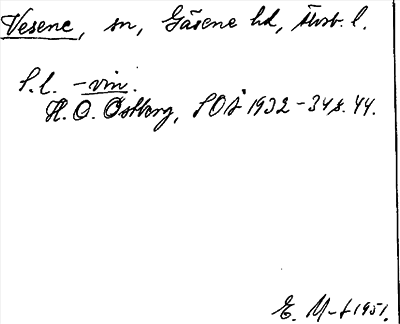 Vesene, sn, Gäsene hd, Älvsb. l.
S. l. -vin.
H. O. Östberg, SOÅ 1932-34 s. 44.
E. M-t 1951.